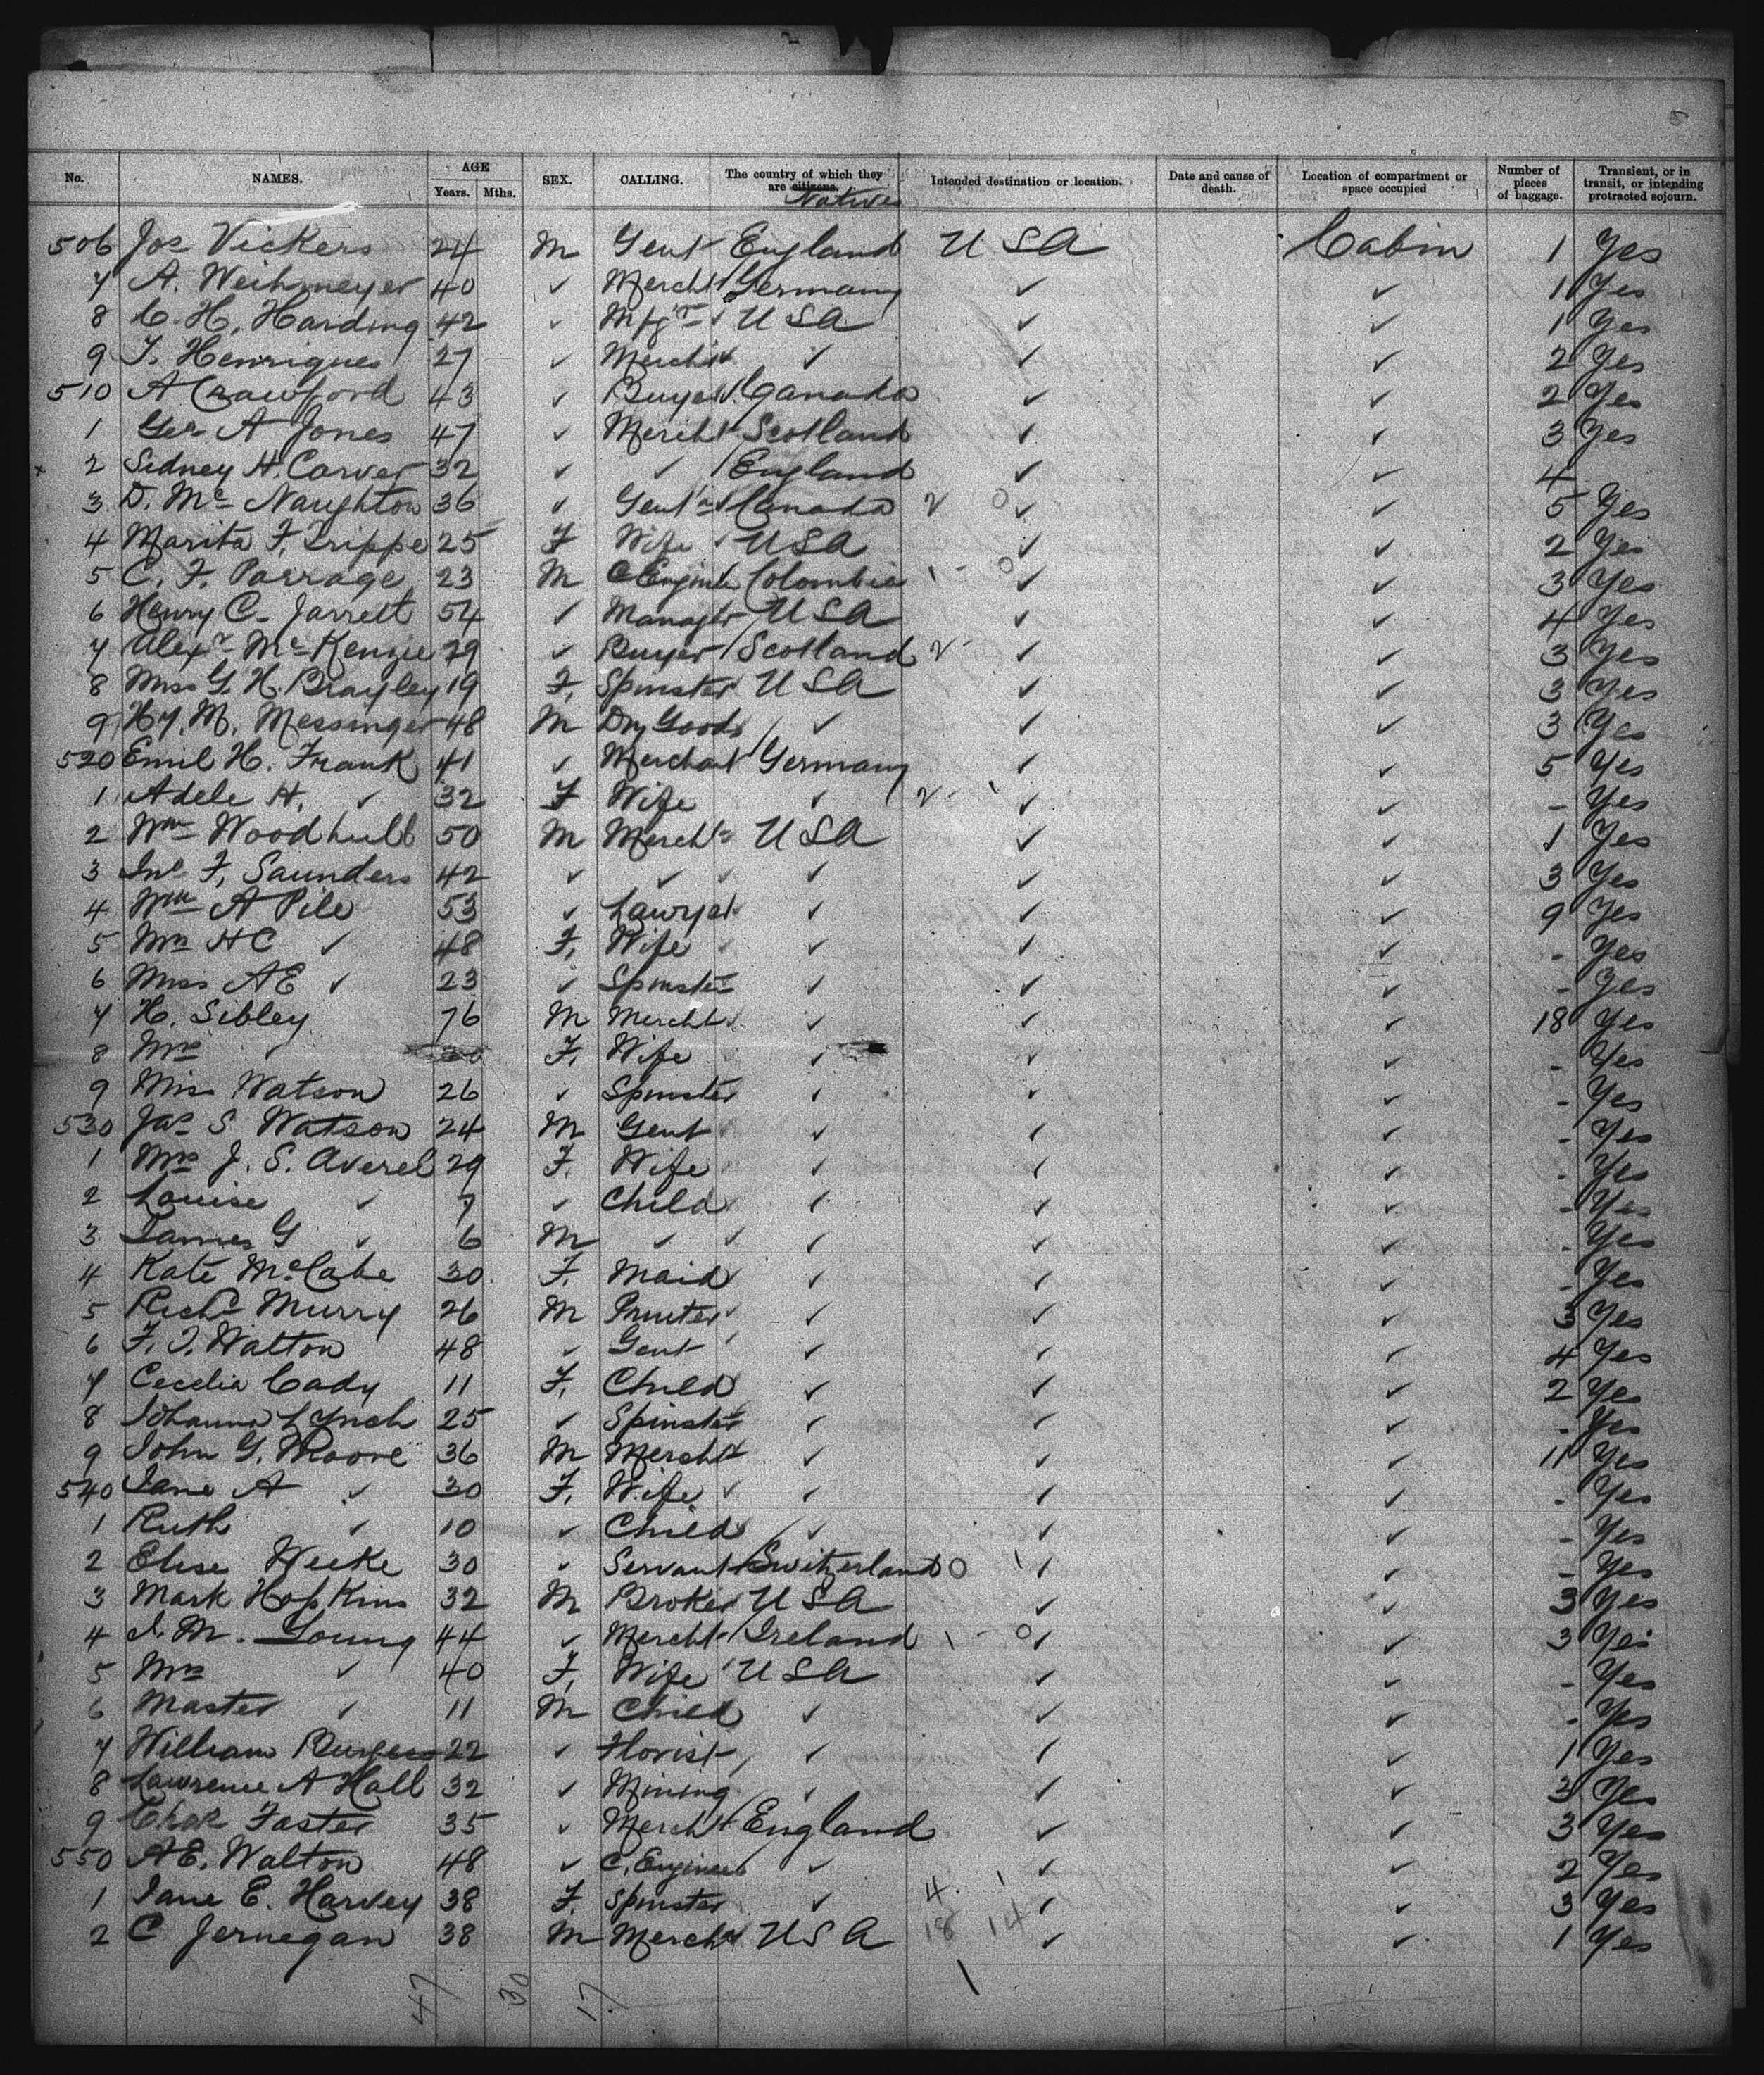 No. NAMES. AGE Years. Mths. SEX. CALLING. The country of which they are citizens. Natives Intended destination or location. Date and cause of death. Location of compartment or space occupied Number of pieces of baggage. Transient, or in transit, or intending protracted sojourn.
506 Jos Vickers 24 M Gent England USA Cabin 1 Yes
7 A. Weihmeyer 40 ✓ Mercht Germany ✓ ✓ 1 Yes
8 C. H. Harding 42 ✓ Mfgr USA ✓ ✓ 1 Yes
9 J. Henriques 27 ✓ Mercht ✓ ✓ ✓ 2 Yes
510 A Crawford 43 ✓ Buyer Canada ✓ ✓ 2 Yes
1 Geo A Jones 47 ✓ Mercht Scotland ✓ ✓ 3 Yes
x 2 Sidney H. Carver 32 ✓ ✓ England ✓ ✓ 4
3 D. Mc Naughton 36 ✓ Gentn Canada 2 0 ✓ ✓ 5 Yes
4 Marita F. Trippe 25 F Wife USA ✓ ✓ 2 Yes
5 C. F. Parrage 23 M C Engineer Colombia 1 - 0 ✓ ✓ 3 Yes
6 Henry C. Jarrett 54 ✓ Manager USA ✓ ✓ 4 Yes
7 Alexr Mc Kenzie 29 ✓ Buyer Scotland 2 - ✓ ✓ 3 Yes
8 Miss G. H. Brayley 19 F. Spinster USA ✓ ✓ 3 Yes
9 Hy. M. Messinger 48 M Dry Goods ✓ ✓ ✓ 3 Yes
520 Emil H. Frank 41 ✓ Merchant Germany ✓ ✓ 5 Yes
1 Adele H. ✓ 32 F Wife ✓ 2 - 1 ✓ ✓ - Yes
2 Wm Woodhull 50 M Mercht USA ✓ ✓ 1 Yes
3 Jno F. Saunders 42 ✓ ✓ ✓ ✓ ✓ 3 Yes
4 Wm A Pile 53 ✓ Lawyer ✓ ✓ ✓ 9 Yes
5 Mrs HC ✓ 48 F. Wife ✓ ✓ ✓ - Yes
6 Miss AE ✓ 23 ✓ Spinster ✓ ✓ ✓ - Yes
7 H. Sibley 76 M Mercht ✓ ✓ ✓ 18 Yes
8 Mrs ✓ F. Wife ✓ ✓ ✓ - Yes
9 Miss Watson 26 ✓ Spinster ✓ ✓ ✓ - Yes
530 Jas S Watson 24 M Gent ✓ ✓ ✓ - Yes
1 Mrs J. S. Averel 29 F. Wife ✓ ✓ ✓ - Yes
2 Louise ✓ 7 ✓ Child ✓ ✓ ✓ - Yes
3 James G ✓ 6 M ✓ ✓ ✓ ✓ - Yes
4 Kate McCabe 30 F. Maid ✓ ✓ ✓ - Yes
5 Richd Murry 26 M Printer ✓ ✓ ✓ 3 Yes
6 F. J. Walton 48 ✓ Gent ✓ ✓ ✓ 4 Yes
7 Cecelia Cady 11 F. Child ✓ ✓ ✓ 2 Yes
8 Johanna Lynch 25 ✓ Spinster ✓ ✓ ✓ - Yes
9 John G. Moore 36 M Mercht ✓ ✓ ✓ 11 Yes
540 Jane A ✓ 30 F. Wife ✓ ✓ ✓ - Yes
1 Ruth ✓ 10 ✓ Child ✓ ✓ ✓ - Yes
2 Elise Weeke 30 ✓ Servant Switzerland 0 1 ✓ ✓ - Yes
3 Mark Hopkins 32 M Broker USA ✓ ✓ 3 Yes
4 J. M. Young 44 ✓ Mercht Ireland 1 - 0 ✓ ✓ 3 Yes
5 Mrs ✓ 40 F. Wife USA ✓ ✓ - Yes
6 Master ✓ 11 M Child ✓ ✓ ✓ - Yes
7 William Burgess 22 ✓ Florist ✓ ✓ ✓ 1 Yes
8 Lawrence A Hall 32 ✓ Mining ✓ ✓ ✓ 3 Yes
9 Chas Foster 35 ✓ Mercht England ✓ ✓ 3 Yes
550 AE. Walton 48 ✓ C. Engineer ✓ ✓ ✓ 2 Yes
1 Jane E. Harvey 38 F. Spinster ✓ 4 - 1 ✓ ✓ 3 Yes
2 C Jernegan 38 M Mercht USA 18 14 ✓ ✓ 1 Yes
47 30 17